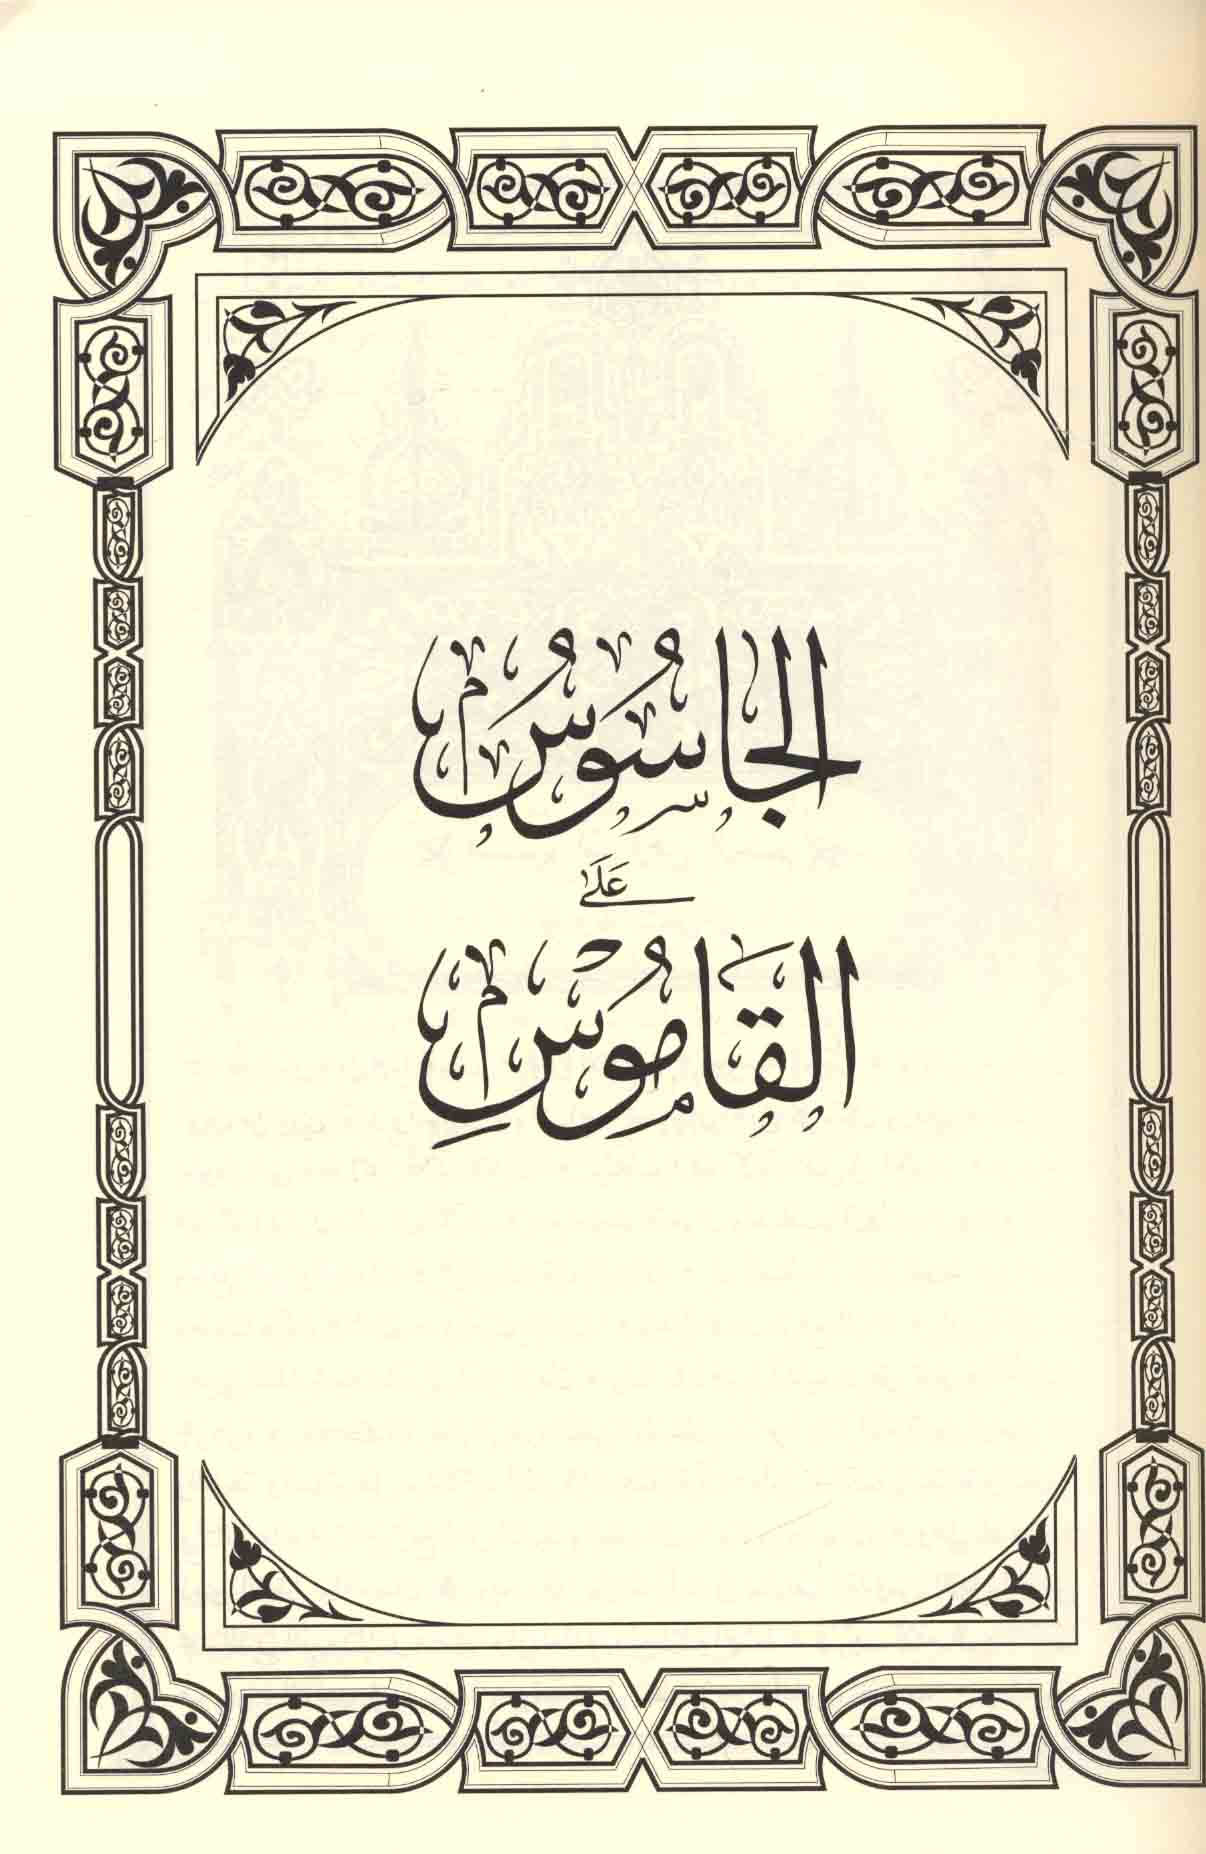 الجَاسُوسُ
عَلَى
القَامُوسِ